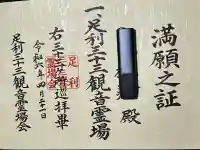 満願之証
一、足利三十三観音霊場
殿
右三十三ヶ所巡拝畢
足利
霊場会
令和六年四月二十一日
足利三十三観音霊場会